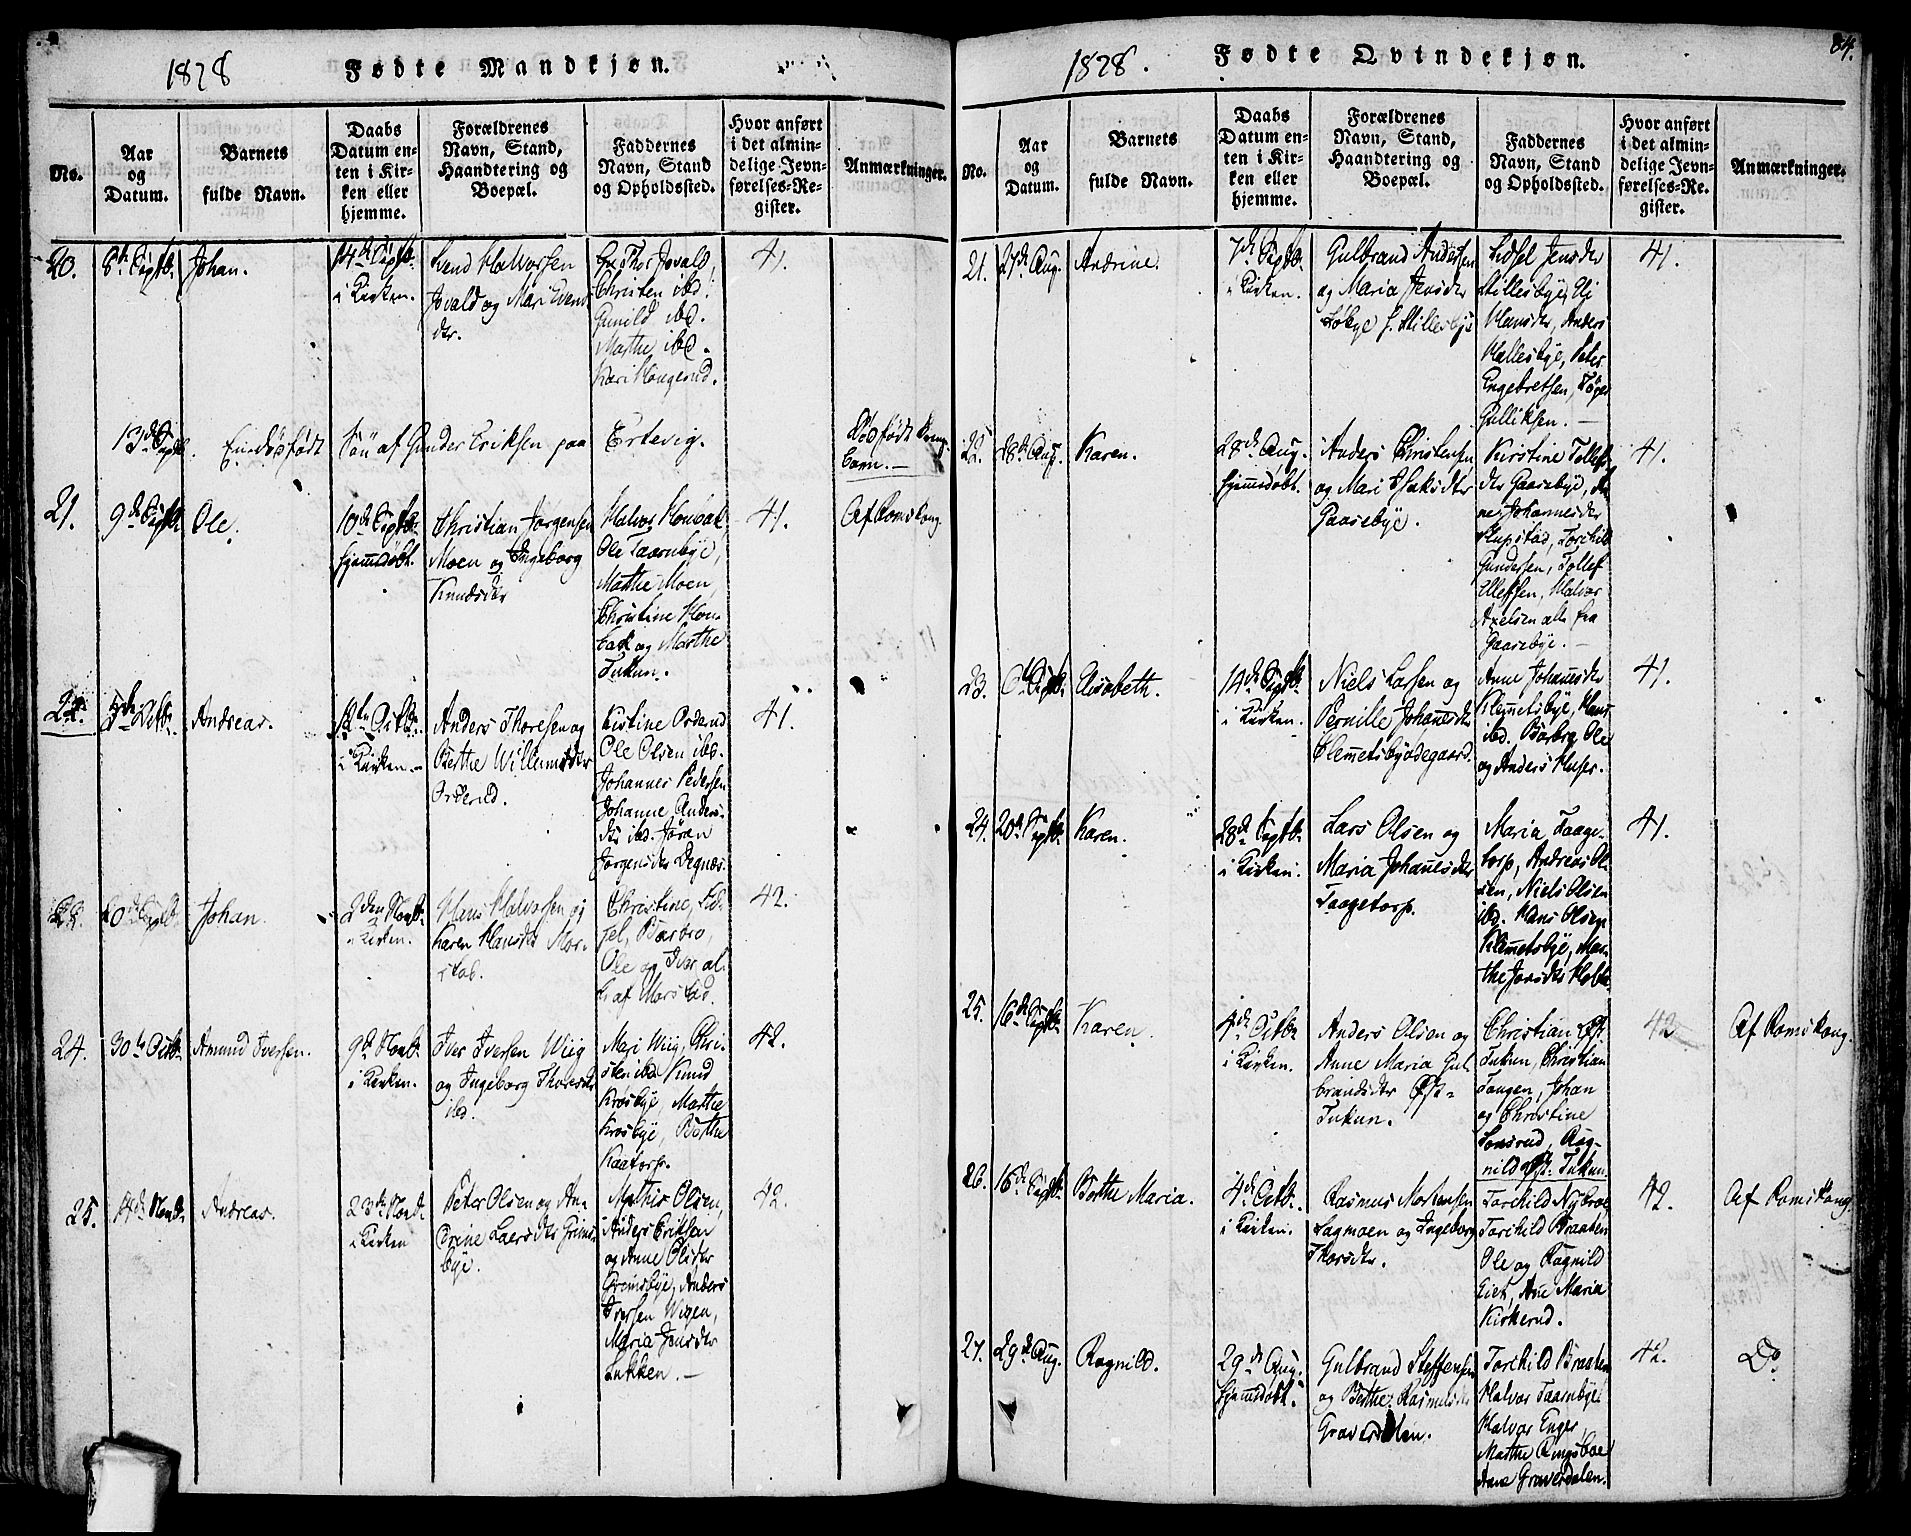 1828 Fødte Mandkjøn.
No.
Aar
og
Datum.
Barnets
fulde Navn.
Daabs
Datum en-
ten i Kir-
ken eller
hjemme.
Forældrenes
Navn, Stand,
Haandtering og
Boepæl.
Faddernes
Navn, Stand
og Opholdssted.
Hvor anført
i det almin-
delige Jevn-
førelses-Re-
gister.
Anmærkninger.
20.
8de Septb.
Johan.
14de Septb.
i Kirken.
Halvorsen
og Mari
dtr.
Christen ibd.
Gunild ibd.
Marthe ibd.
Kari Haugerud.
41.
13de Septb.
En dødfødt Søn af Gunder Eriksen paa Ertevig.
Dødfødt
Barn.
21.
9de Septb.
Ole.
10de Septb.
hjemedøbt.
Christian Jørgensen
Moen og Ingeborg
Knudsdtr
Halvor
Ole Taarnbye,
Marthe Moen,
Christine
og Marthe
Tukun.
41.
Af Romskoug
22.
Andreas.
i Kirken.
Anders Thoresen og
Berthe Willumsdtr
Orderud.
Kistine Orderud
Ole Olsen ibd.
Johannes Pedersen
Johanne Anders-
dtr ibd. Jøran
Jørgensdtr Degnæs.
41.
23.
Johan.
2den Novb.
i Kirken.
Hans Halvorsen og
Karen Hansdtr Mor-
stad.
Christine, Sid-
sel, Barbro,
Ole og Iver al-
le af Morstad.
42.
24.
30te Octb.
Amund Iversen.
9de Novb.
i Kirken.
Iver Iversen Wiig
og Ingeborg Thoresdtr
ibd.
Mari Wiig, Chri-
sten ibd. Knud
Krosbye, Marthe
Krosbye, Berthe
Kaatorp.
42.
25.
Novb.
Andreas.
23de Novb.
i Kirken
Peter Olsen og An-
drine Laersdtr Grims-
bye.
Mathis Olsen,
Anders Eriksen
og Anne Olsdtr
Grimsbye, Anders
Iversen Wigen,
Maria Jensdtr
Lukken.
42.
1828. Fødte Qvindekjøn. 84.
No.
Aar
og
Datum.
Barnets
fulde Navn.
Daabs
Datum en-
ten i Kir-
ken eller
hjemme.
Forældrenes
Navn, Stand,
Haandtering og
Boepæl.
Faddernes
Navn, Stand
og Opholdssted.
Hvor anført
i det almin-
delige Jevn-
førelses-Re-
gister.
Anmærkninger.
21.
27de Aug.
Andrine.
7de Septb.
i Kirken.
Gulbrand Andersen
og Maria Jensdtr
Sidsel Jensdtr
Hansdtr, Anders
Hallesbye, Peter
Engebretsen,
Gulliksen.
41.
22.
28de Aug.
Karen.
28de Aug.
hjemedøbt.
Anders Christensen
og Mari
Gaasebye.
Kirstine Tollefs-
dtr Gaasebye, An-
ne Johannesdtr
Torchild
Gundersen, Tollef
Ellefsen, Halvor
Axelsen alle fra
Gaasebye.
41.
23.
Elisabeth.
14de Septb.
i Kirken.
Niels Larsen og
Pernille Johanesdtr
Clemetsbyødegaard.
Anne Johanesdtr
Klemetsbye, Hans
ibd. Barbro, Ole
og Anders
41.
24.
20de Septb.
Karen.
28de Septb.
i Kirken.
Lars Olsen og
Maria Johanesdtr
Taagetorp.
Maria Taage-
torp, Andreas Ol-
sen, Niels Olsen
ibd. Hans Olsen
Klemetsbye, Mar-
the Jensdtr
41.
25.
16de Septb.
Karen.
4de Octb.
i Kirken.
Anders Olsen og
Anne Maria Gul-
brandsdtr Øst-
Tukun.
Christian Øst-
Tukun, Christian
Tangen, Johan
og Christine
Rag-
nild Øst-Tukun.
42
Af Romskoug.
26.
16de Septb.
Berthe Maria.
4de Octb.
i Kirken.
Rasmus Mortensen
Lagmoen og Ingeborg
Thorsdtr.
Torchild Nybroe,
Torchild Braaten
Ole og Ragnild
Eiet, Ane Maria
Kirkerud.
42.
Af Romskoug.
27.
29de Aug.
Ragnild.
29de Aug.
hjemedøbt.
Gulbrand Steffensen
og Berthe Rasmusdtr
Graverdalen.
Torchild Braaten
Halvor Taarnbye
Halvor Enger
Marthe Ringsboe
Anne Graverdalen.
42.
Do